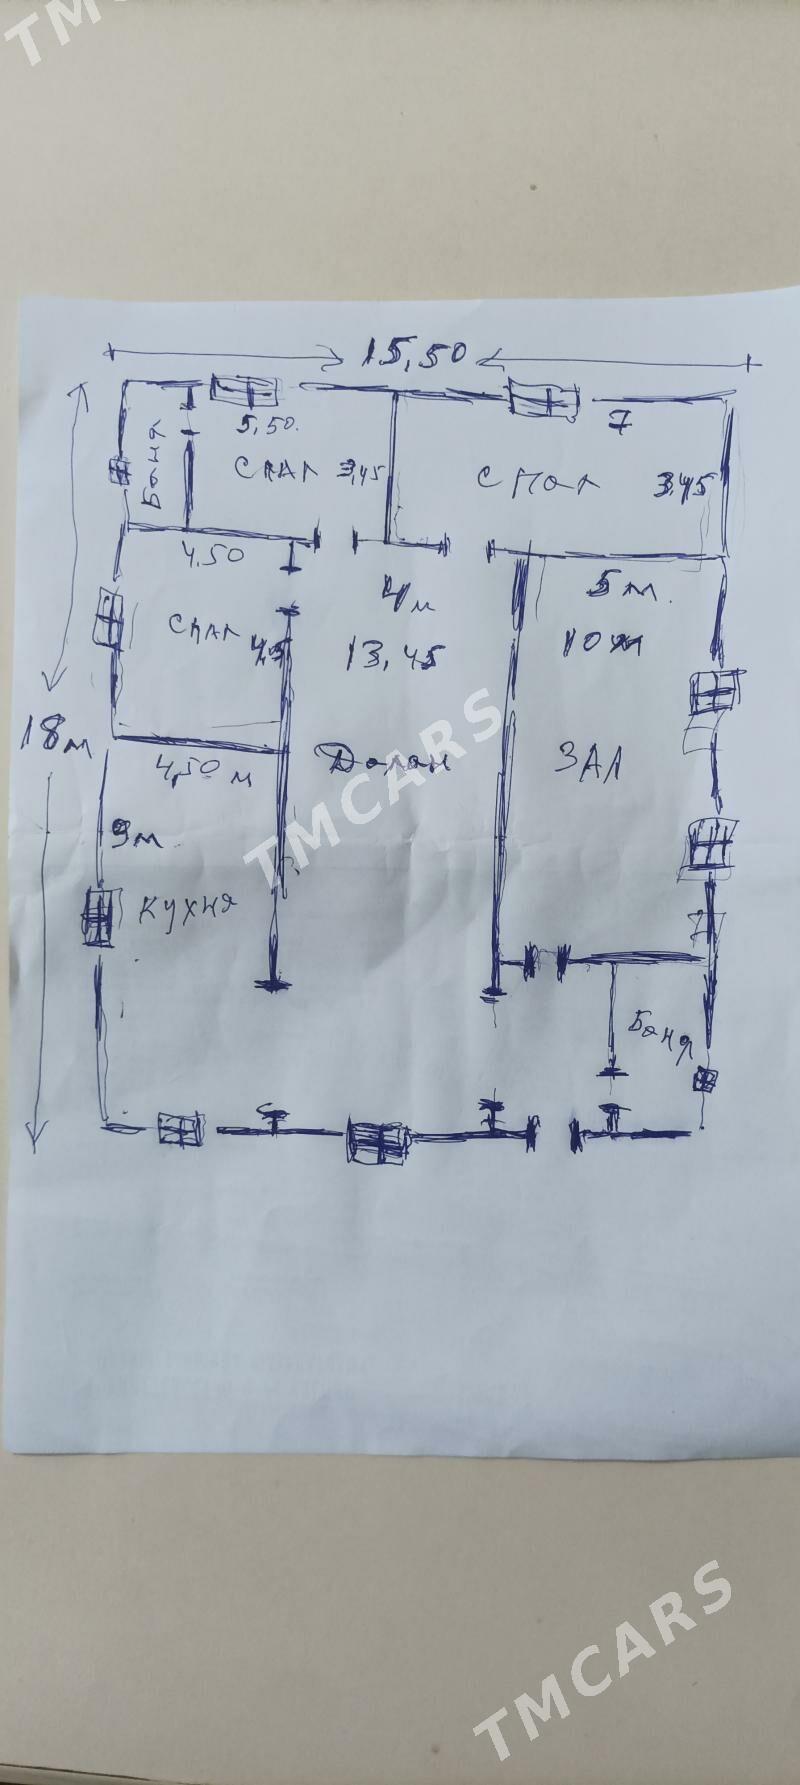 TMCARS
15,50
5,50.
7
Баня
Спал
3,45
Спал
3,45
4,50
4м
5м.
Спал
4,5
13,45
10м
18м
4,50 м
Долан
ЗАЛ
TMCARS
9м
Кухня
Баня
TMCARS